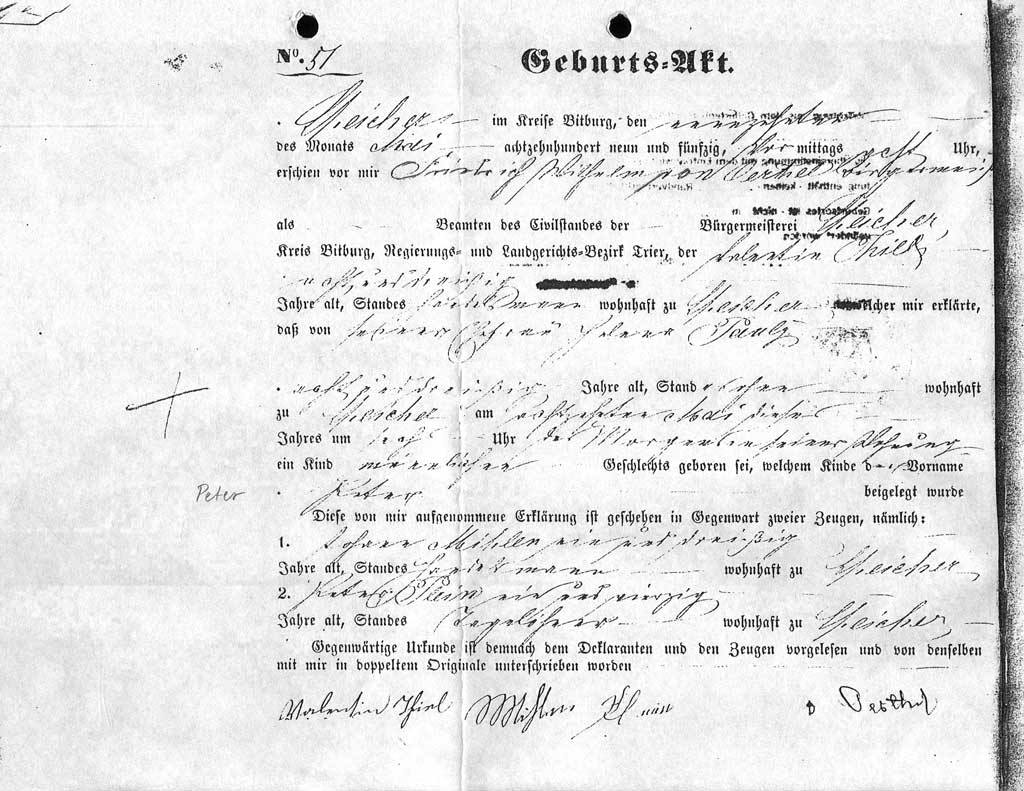 Nº. 51
Geburts-Akt.
Speicher im Kreise Bitburg, den neunzehnten
des Monats Mai achtzehnhundert neun und fünfzig, Vor mittags acht Uhr,
erschien vor mir Friedrich Wilhelm von
als Beamten des Civilstandes der Bürgermeisterei Speicher,
Kreis Bitburg, Regierungs- und Landgerichts-Bezirk Trier, der Valentin Thiel
acht und dreißig
Jahre alt, Standes Handelsmann wohnhaft zu Speicher welcher mir erklärte,
daß von seiner Ehefrau Helena Pauly
acht und dreißig Jahre alt, Stand ohne wohnhaft
zu Speicher am achtzehnten Mai dieses
Jahres um sechs Uhr des Morgens in seiner Wohnung
ein Kind männlichen Geschlechts geboren sei, welchem Kinde der Vorname
Peter
Peter beigelegt wurde
Diese von mir aufgenommene Erklärung ist geschehen in Gegenwart zweier Zeugen, nämlich:
1. Johann ein und dreißig
Jahre alt, Standes Handelsmann wohnhaft zu Speicher
2. Peter Plein ein und vierzig
Jahre alt, Standes Tagelöhner wohnhaft zu Speicher,
Gegenwärtige Urkunde ist demnach dem Deklaranten und den Zeugen vorgelesen und von denselben
mit mir in doppeltem Originale unterschrieben worden
Valentin Thiel